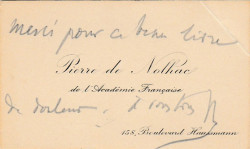 merci pour ce beau livre
Pierre de Nolhac
de l'Académie Française
de douleur.
158, Boulevard Haussmann